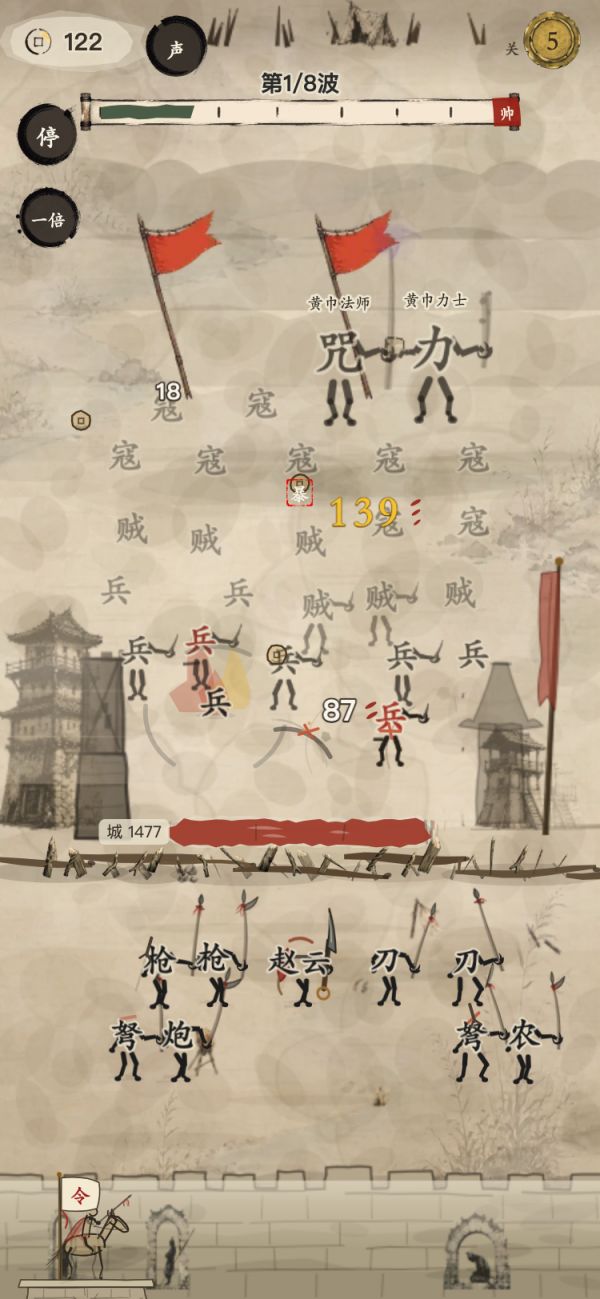 122
声
关 5
第1/8波
停
帅
一倍
黄巾法师 黄巾力士
咒 力
18
寇 寇
寇 寇 寇 寇 寇
暴
139
寇 寇
贼 贼 贼
兵 兵 贼 贼 贼
兵 兵 兵 兵 兵
兵
87 兵
城 1477
枪 枪 赵云 刃 刃
弩 炮 弩 农
令